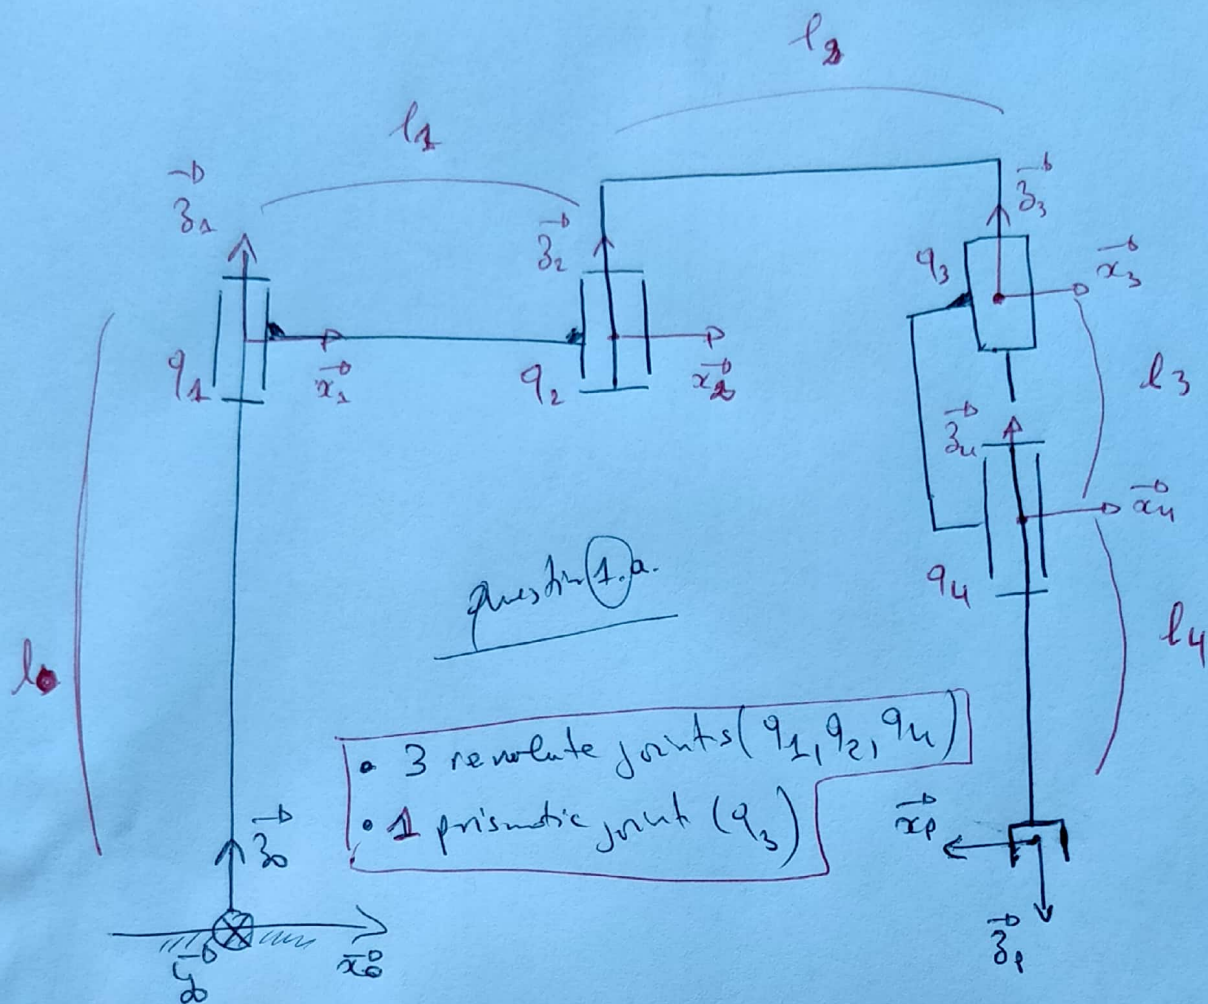 l2
l1
z1
z2
z3
q3
x3
q1
x1
q2
x2
l3
z4
x4
question 1.a.
q4
l0
l4
• 3 revolute joints (q1, q2, q4)
• 1 prismatic joint (q3)
xp
z0
y0
x0
zp